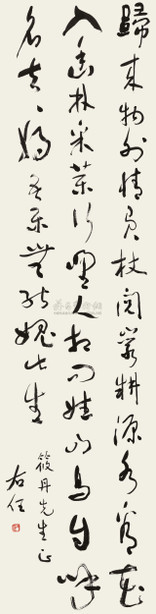 歸來物外情負杖閱巖耕源水看花
入幽林采藥行野人相問姓山鳥自呼
名去々獨吾樂無能愧此生
筱丹先生正
右任